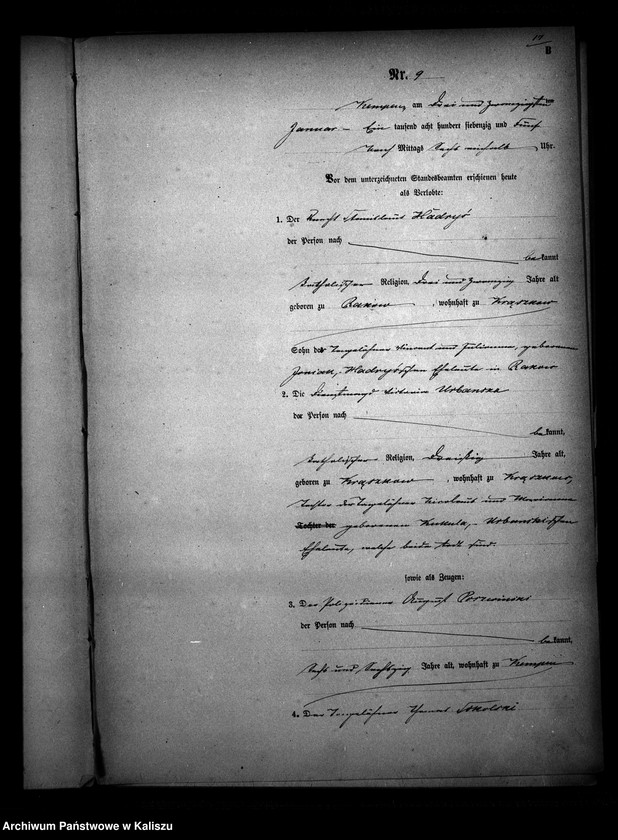 17
B
Nr. 9
Kempen, am Drei und zwanzigsten
Januar Ein tausend acht hundert siebenzig und Fünf
Nach Mittags Uhr.
Vor dem unterzeichneten Standesbeamten erschienen heute
als Verlobte:
1. Der Knecht Stanislaus Hadryś
der Person nach
bekannt
katholischer Religion, Drei und zwanzig Jahre alt
geboren zu Rakow, wohnhaft zu Krąszkow
Sohn der Tagelöhner Vincent und Julianna, geborenen
Joniak, Hadryśschen Eheleute in Rakow
2. Die Dienstmagd Victoria Urbanska
der Person nach
bekannt,
katholischer Religion, Dreißig Jahre alt,
geboren zu Krąszkow, wohnhaft zu Krąszkow,
Tochter der Tagelöhner Nicolaus und Marianna
Tochter der geborenen Kukula, Urbanskischen
Eheleute, welche beide todt sind.
sowie als Zeugen:
3. Der Polizeidiener August
der Person nach
bekannt,
Sechs und Sechszig Jahre alt, wohnhaft zu Kempen
4. Der Tagelöhner Thomas Sokolski
Archiwum Państwowe w Kaliszu